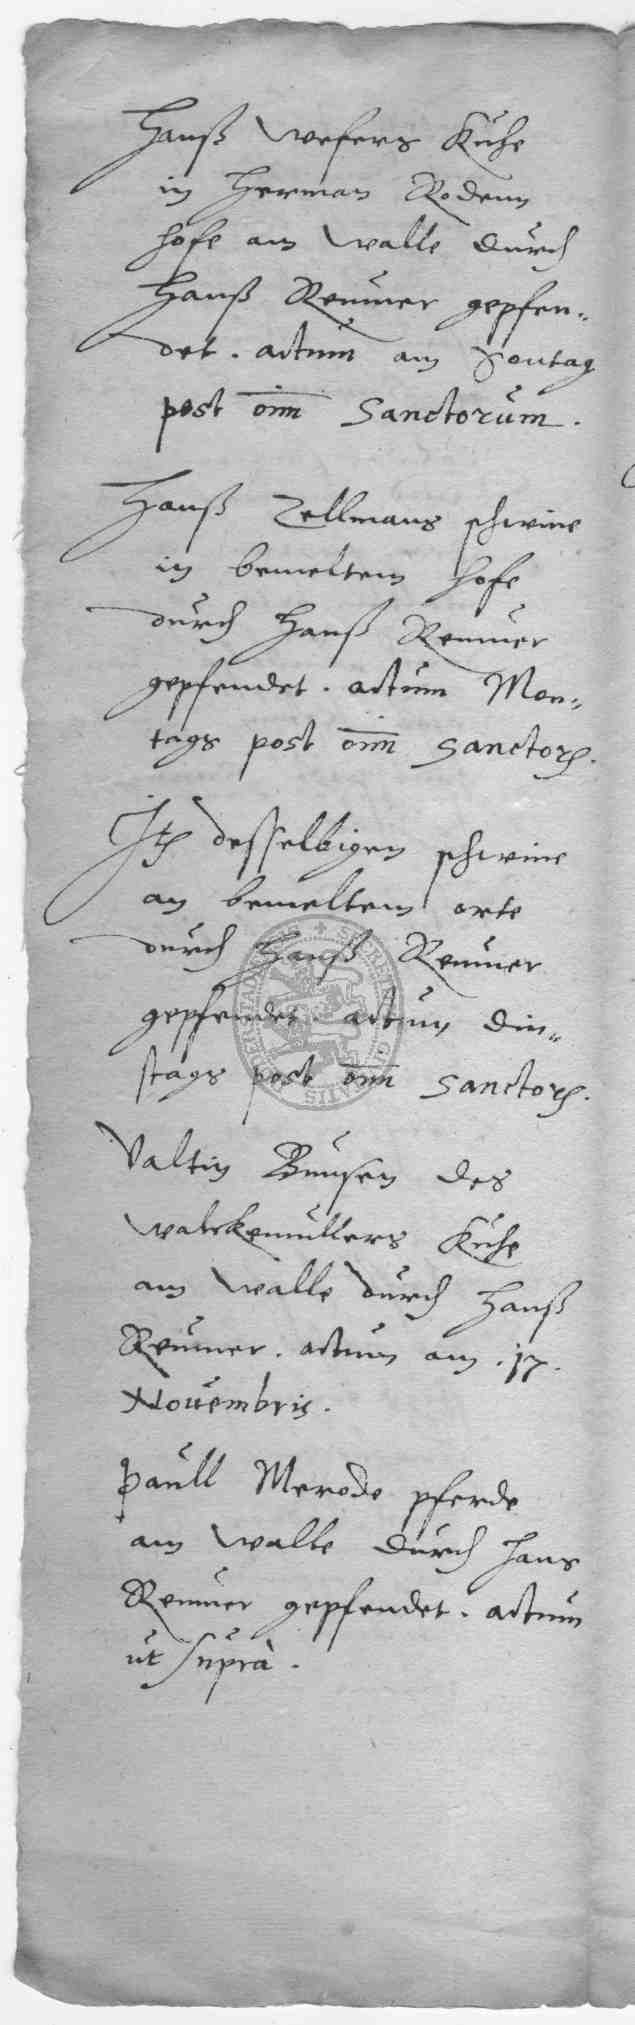 Hanß Wefers Kuhe
in Herman Rodenn
hofe am Walle durch
Hanß Renner gepfen„
det. actum am Sontag
post om̅ Sanctorum.
Hanß Zellmans schwine
in bemeltem hofe
durch Hanß Renner
gepfendet. actum Mon„
tags post om̅ Sanctorꝭ.
Itꝭ desselbigen schwine
an bemeltem orte
durch Hanß Renner
gepfendet. actum Din„
stags post om̅ Sanctorꝭ.
Valtin Bunsen des
walckemullers Kuhe
am Walle durch Hanß
Renner. actum am .17.
Novembris.
Paull Merode pferde
am Walle durch Hans
Renner gepfendet. actum
ut supra.